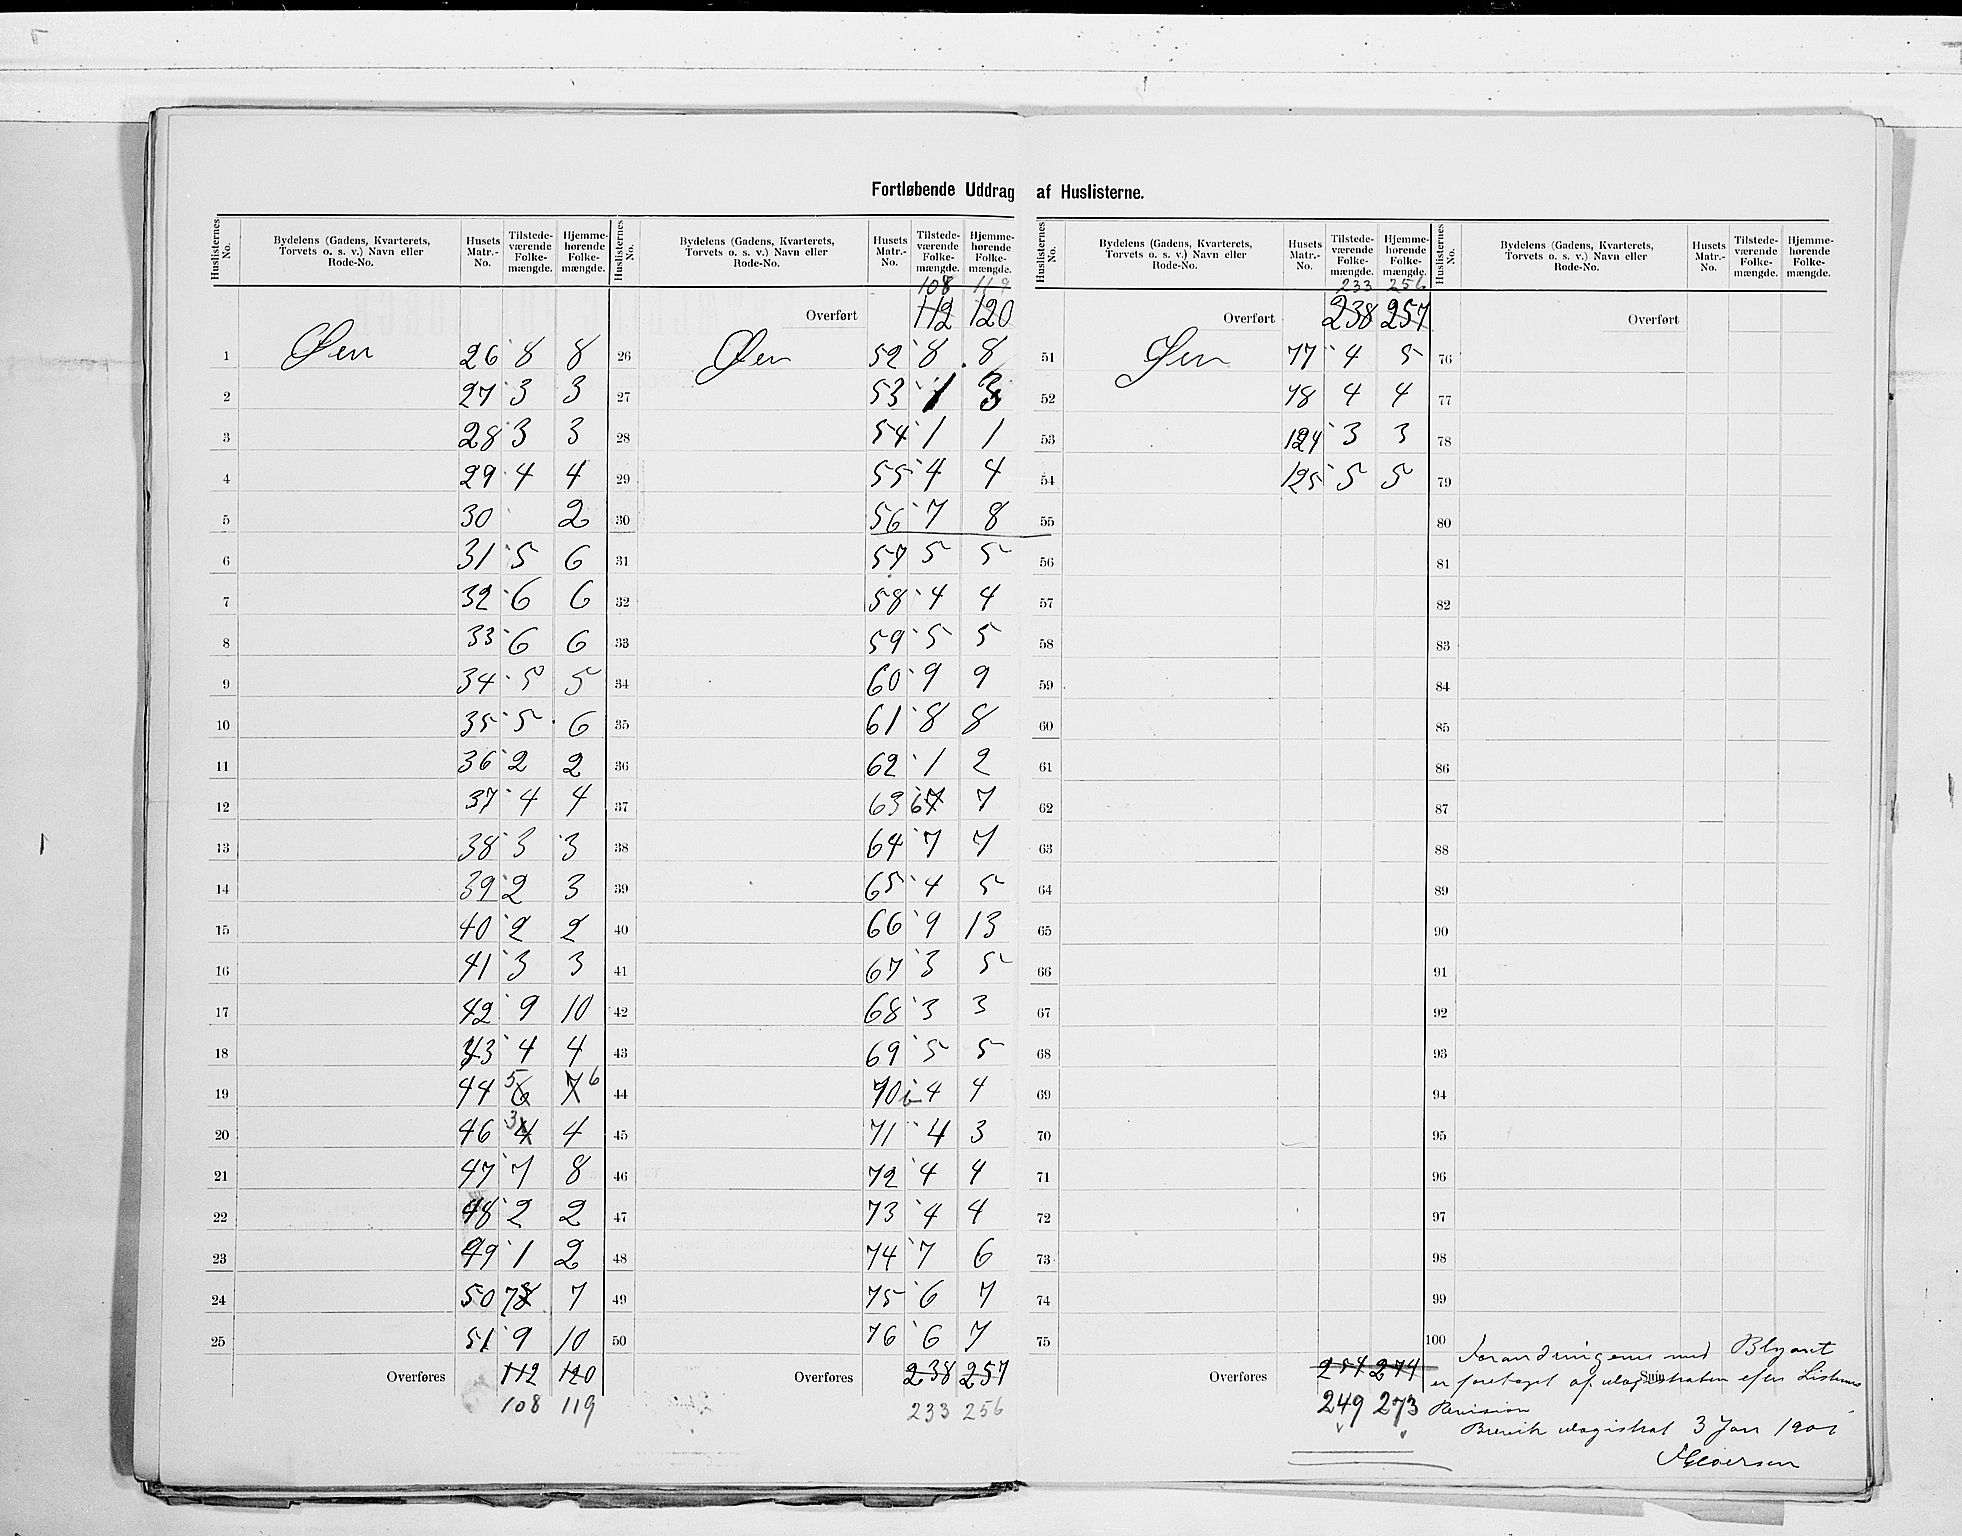 Fortløbende Uddrag af Huslisterne.
Huslisternes No. | Bydelens (Gadens, Kvarterets, Torvets o. s. v.) Navn eller Rode-No. | Husets Matr.-No. | Tilstede-værende Folke-mængde. | Hjemme-hørende Folke-mængde. | Huslisternes No. | Bydelens (Gadens, Kvarterets, Torvets o. s. v.) Navn eller Rode-No. | Husets Matr.-No. | Tilstede-værende Folke-mængde. | Hjemme-hørende Folke-mængde. | Huslisternes No. | Bydelens (Gadens, Kvarterets, Torvets o. s. v.) Navn eller Rode-No. | Husets Matr.-No. | Tilstede-værende Folke-mængde. | Hjemme-hørende Folke-mængde. | Huslisternes No. | Bydelens (Gadens, Kvarterets, Torvets o. s. v.) Navn eller Rode-No. | Husets Matr.-No. | Tilstede-værende Folke-mængde. | Hjemme-hørende Folke-mængde.
108 119 233 256
Overført 112 120 Overført 238 257 Overført
1 Øen 26 8 8 26 Øen 52 8 8 51 Øen 77 4 5 76
2 27 3 3 27 53 1 3 52 78 4 4 77
3 28 3 3 28 54 1 1 53 124 3 3 78
4 29 4 4 29 55 4 4 54 125 5 5 79
5 30 2 30 56 7 8 55 80
6 31 5 6 31 57 5 5 56 81
7 32 6 6 32 58 4 4 57 82
8 33 6 6 33 59 5 5 58 83
9 34 5 5 34 60 9 9 59 84
10 35 5 6 35 61 8 8 60 85
11 36 2 2 36 62 1 2 61 86
12 37 4 4 37 63 6 7 7 62 87
13 38 3 3 38 64 7 7 63 88
14 39 2 3 39 65 4 5 64 89
15 40 2 2 40 66 9 13 65 90
16 41 3 3 41 67 3 5 66 91
17 42 9 10 42 68 3 3 67 92
18 43 4 4 43 69 5 5 68 93
19 44 5 6 7 6 44 70 b 4 4 69 94
20 46 3 4 4 45 71 4 3 70 95
21 47 7 8 46 72 4 4 71 96
22 48 2 2 47 73 4 4 72 97
23 49 1 2 48 74 7 6 73 98
24 50 7 8 7 49 75 6 7 74 99
25 51 9 10 50 76 6 7 75 100
Overføres 112 120 Overføres 238 257 Overføres 254 274 Sum
108 119 233 256 249 273
Forandringerne med Blyant
er foretaget af Magistraten efter Listernes
Revision
Brevik Magistrat 3 Jan 1901